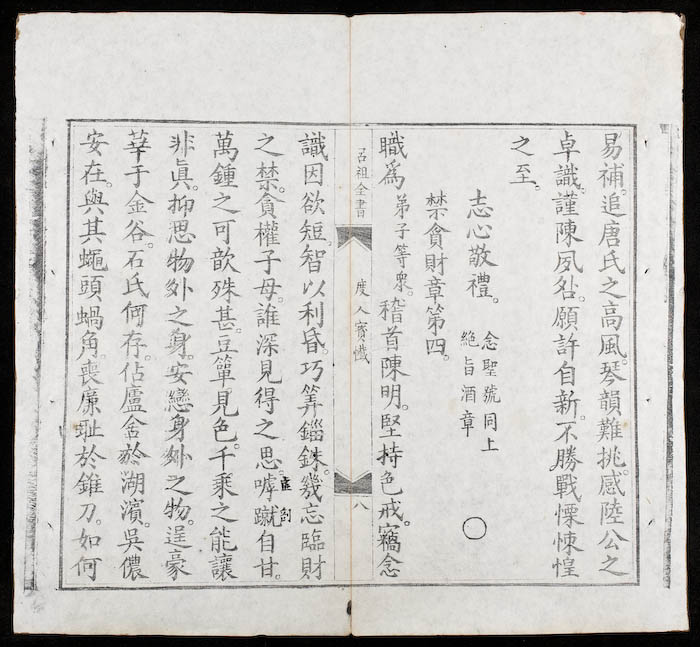 易補。追唐氏之高風。琴韻難挑。感陸公之
卓識。謹陳夙咎。願許自新。不勝戰慄悚惶
之至。
志心敬禮。
念聖號同上
絶旨酒章
○
禁貪財章第四。
職爲弟子等衆。稽首陳明。堅持色戒。竊念
呂祖全書
度人寶懺
八
識因欲短。智以利昏。巧筭錙銖。幾忘臨財
之禁。貪權子母。誰深見得之思。嘑蹴自甘。
萬鍾之可歆殊甚。豆簞見色。千乘之能讓
非眞。抑思物外之身。安戀身外之物。逞豪
華于金谷。石氏何存。佔廬舍於湖濵。吳儂
安在。與其蠅頭蝸角。喪廉恥於錐刀。如何